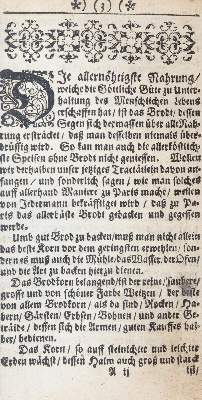 *) (3) (*
Die allernöhtigste Nahrung/
welche die Göttliche Güte zu Unter-
haltung des Menschlichen Lebens
erschaffen hat/ ist das Brodt/ dessen
Segen sich dermassen über alle Nah-
rung erstrecket/ daß man desselben niemals über-
drüssig wird. So kan man auch die allerköstlich-
ste Speisen ohne Brodt nicht geniessen. Wollen
wir derhalben unser jetziges Tractätlein davon an-
fangen/ und sonderlich sagen/ wie man solches
auff allerhand Maniere zu Paris mache/ weilen
von Jedermann bekräfftiget wird/ daß zu Pa-
ris das allerbäste Brodt gebacken und gegessen
werde.
Umb gut Brod zu backen/ muß man nicht allein
das beste Korn vor dem geringsten erwehlen/ son-
dern es muß auch die Mühle/ das Wasser/ der Ofen/
und die Art zu backen hierzu dienen.
Das Brodkorn belangend/ ist der reine/ saubere/
grosse und von schöner Farbe Weitzen/ der beste
von allem Brodkorn/ als da sind/ Rocken/ Ha-
bern/ Gärsten/ Erbsen/ Bohnen/ und ander Ge-
träide/ dessen sich die Armen/ guten Kauffes hal-
ber/ bedienen.
Das Korn/ so auff steinichter und leichter
Erden wächst/ dessen Halm auch groß und starck
A ij